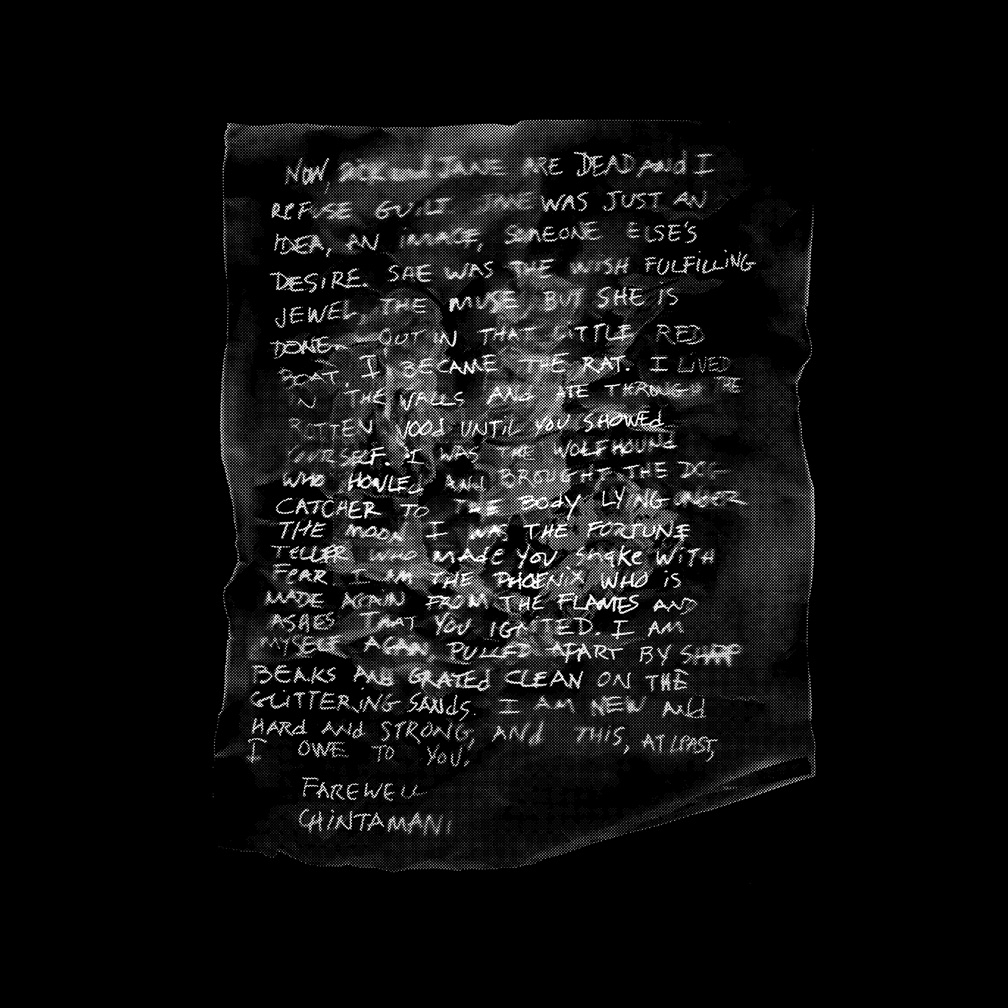 NOW, DICK and JANE ARE DEAD and I
REFUSE GUILT. JANE WAS JUST AN
IDEA, AN IMAGE, SOMEONE ELSE'S
DESIRE. SHE WAS THE WISH FULFILLING
JEWEL, THE MUSE BUT SHE IS
DONE — OUT IN THAT LITTLE RED
BOAT. I BECAME THE RAT. I LIVED
IN THE WALLS AND ATE THROUGH THE
ROTTEN WOOD UNTIL YOU SHOWED
YOURSELF. I WAS THE WOLFHOUND
WHO HOWLED AND BROUGHT THE DOG
CATCHER TO THE BODY LYING UNDER
THE MOON I WAS THE FORTUNE
TELLER WHO MADE YOU SHAKE WITH
FEAR I AM THE PHOENIX WHO IS
MADE AGAIN FROM THE FLAMES AND
ASHES THAT YOU IGNITED. I AM
MYSELF AGAIN, PULLED APART BY SHARP
BEAKS AND GRATED CLEAN ON THE
GLITTERING SANDS. I AM NEW AND
HARD AND STRONG, AND THIS, AT LEAST,
I OWE TO YOU.
FAREWELL
CHINTAMANI